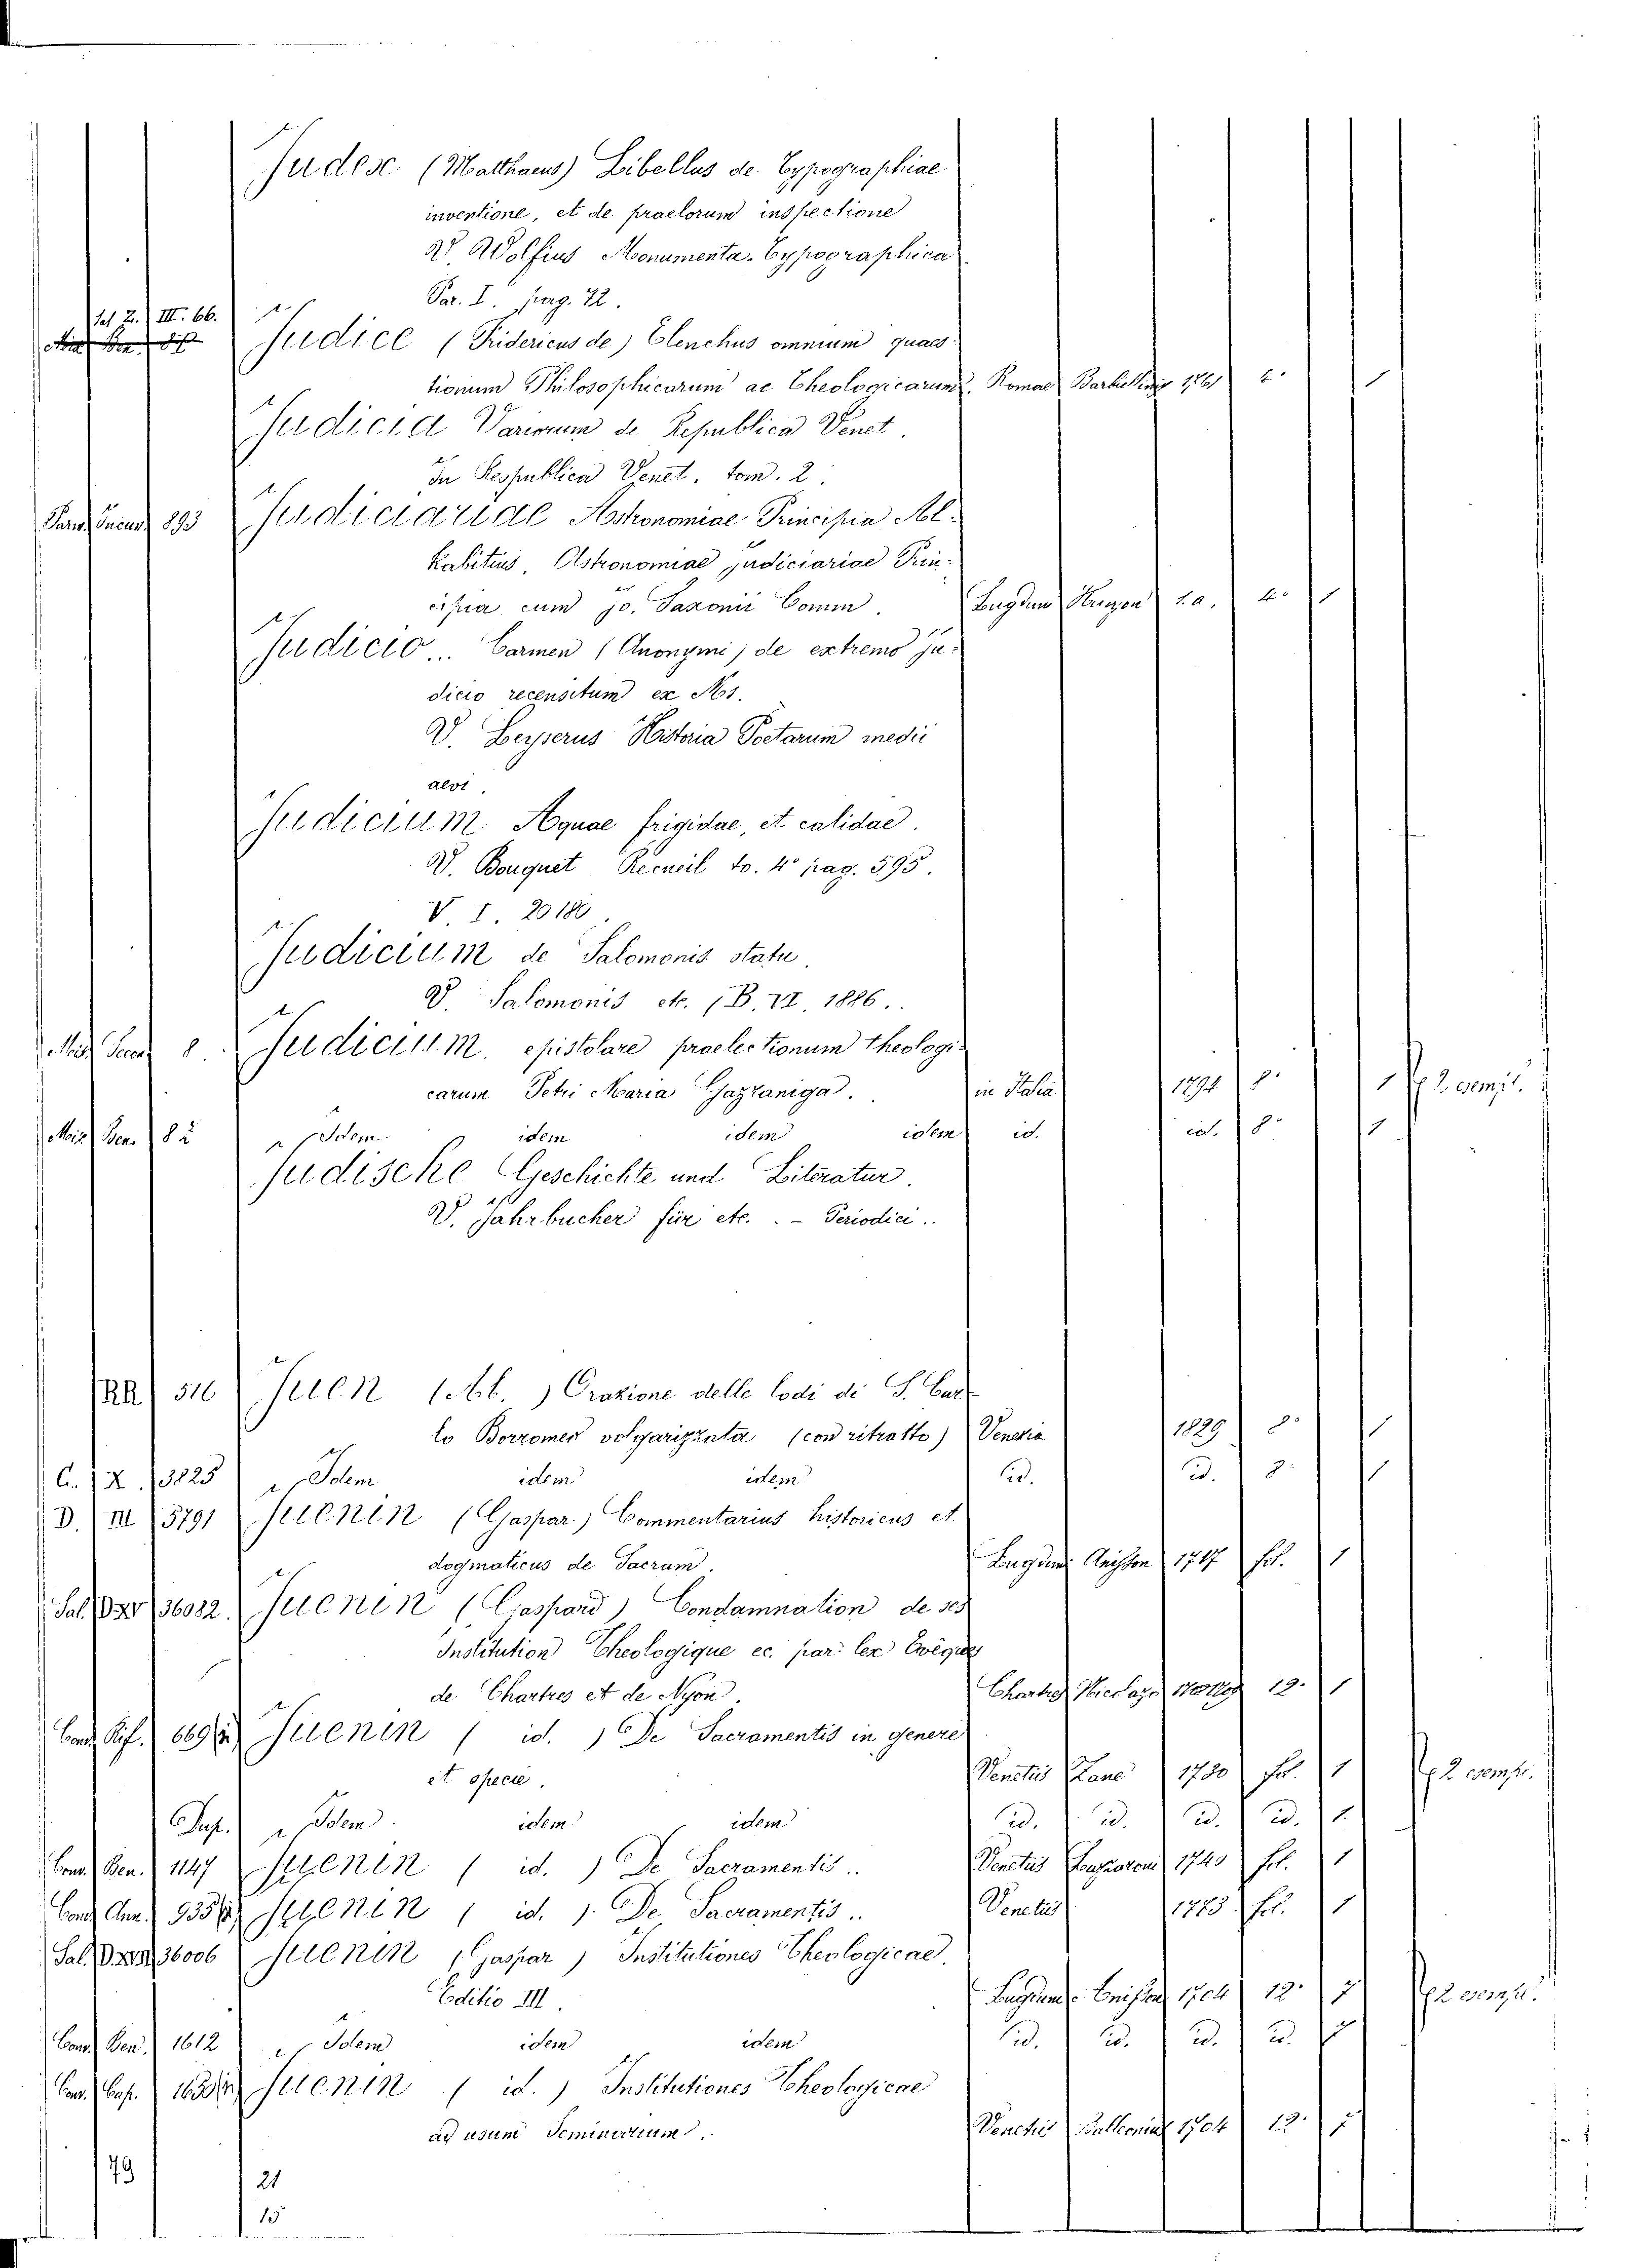 Judex (Matthaeus) Libellus de Typographiae
inventione, et de praelorum inspectione
V. Wolfius Monumenta Typographica
Par. I. pag. 72.
Sal Z. III. 66. Judice (Fridericus de) Elenchus omnium quaes-
tionum Philosophicarum ac Theologicarum. Romae 1761 4° 1
Judicia Variorum de Republica Venet.
In Respublica Venet. tom. 2.
893 Judiciariae Astronomiae Principia Al-
kabitius, Astronomiae judiciariae Prin-
cipia cum Jo. Saxonii Comm. Lugdun s.a. 4° 1
Judicio... Carmen (Anonymi) de extremo ju-
dicio recensitum ex Ms.
V. Leyserus Historia Poetarum medii
aevi.
Judicium Aquae frigidae, et calidae.
V. Bouquet Recueil to. 4° pag. 595.
V. I. 20180.
Judicium de Salomonis statu.
V. Salomonis etc. (B. VI 1886.
8 Judicium epistolare praelectionum theologi-
carum Petri Maria Gazzaniga. in Italia 1794 8° 1 2 esempl.
Ben. 82 Idem idem idem idem id. id. 8° 1
Judische Geschichte und Literatur.
V. Jahrbucher für etc. - Periodici.
RR 516 Juen (Ab.) Orazione delle lodi di S. Car-
lo Borromeo volgarizzata (con ritratto) Venezia 1829 8° 1
C. X. 3825 Idem idem idem id. id. 8° 1
D. III 5791 Juenin (Gaspar) Commentarius historicus et
dogmaticus de Sacram. Lugduni Anisson 1717 fol. 1
Sal. 36032. Juenin (Gaspard) Condamnation de ses
Institution Theologique ec. par les Evéques
de Chartres et de Nyon. Chartres 12. 1
Cons. Rif. Juenin (id.) De Sacramentis in genere
et specie. Venetiis Zane 1730 fol. 1 2 esempl.
Sup. Idem idem idem id. id. id. id. 1
Cons. Ben. 1147 Juenin (id.) De Sacramentis.. Venetiis 1740 fol. 1
Cons. Ann. Juenin (id.) De Sacramentis.. Venetiis 1773 fol. 1
Sal. 36006 Juenin (Gaspar) Institutiones Theologicae.
Editio III. Lugduni 1704 12° 7 2 esempl.
Cons. Ben. 1612 Idem idem idem id. id. id. id. 7
Cons. Cap. Juenin (id.) Institutiones Theologicae
ad usum Seminarium. Venetiis Balleonius 1704 12° 7
79
21
15